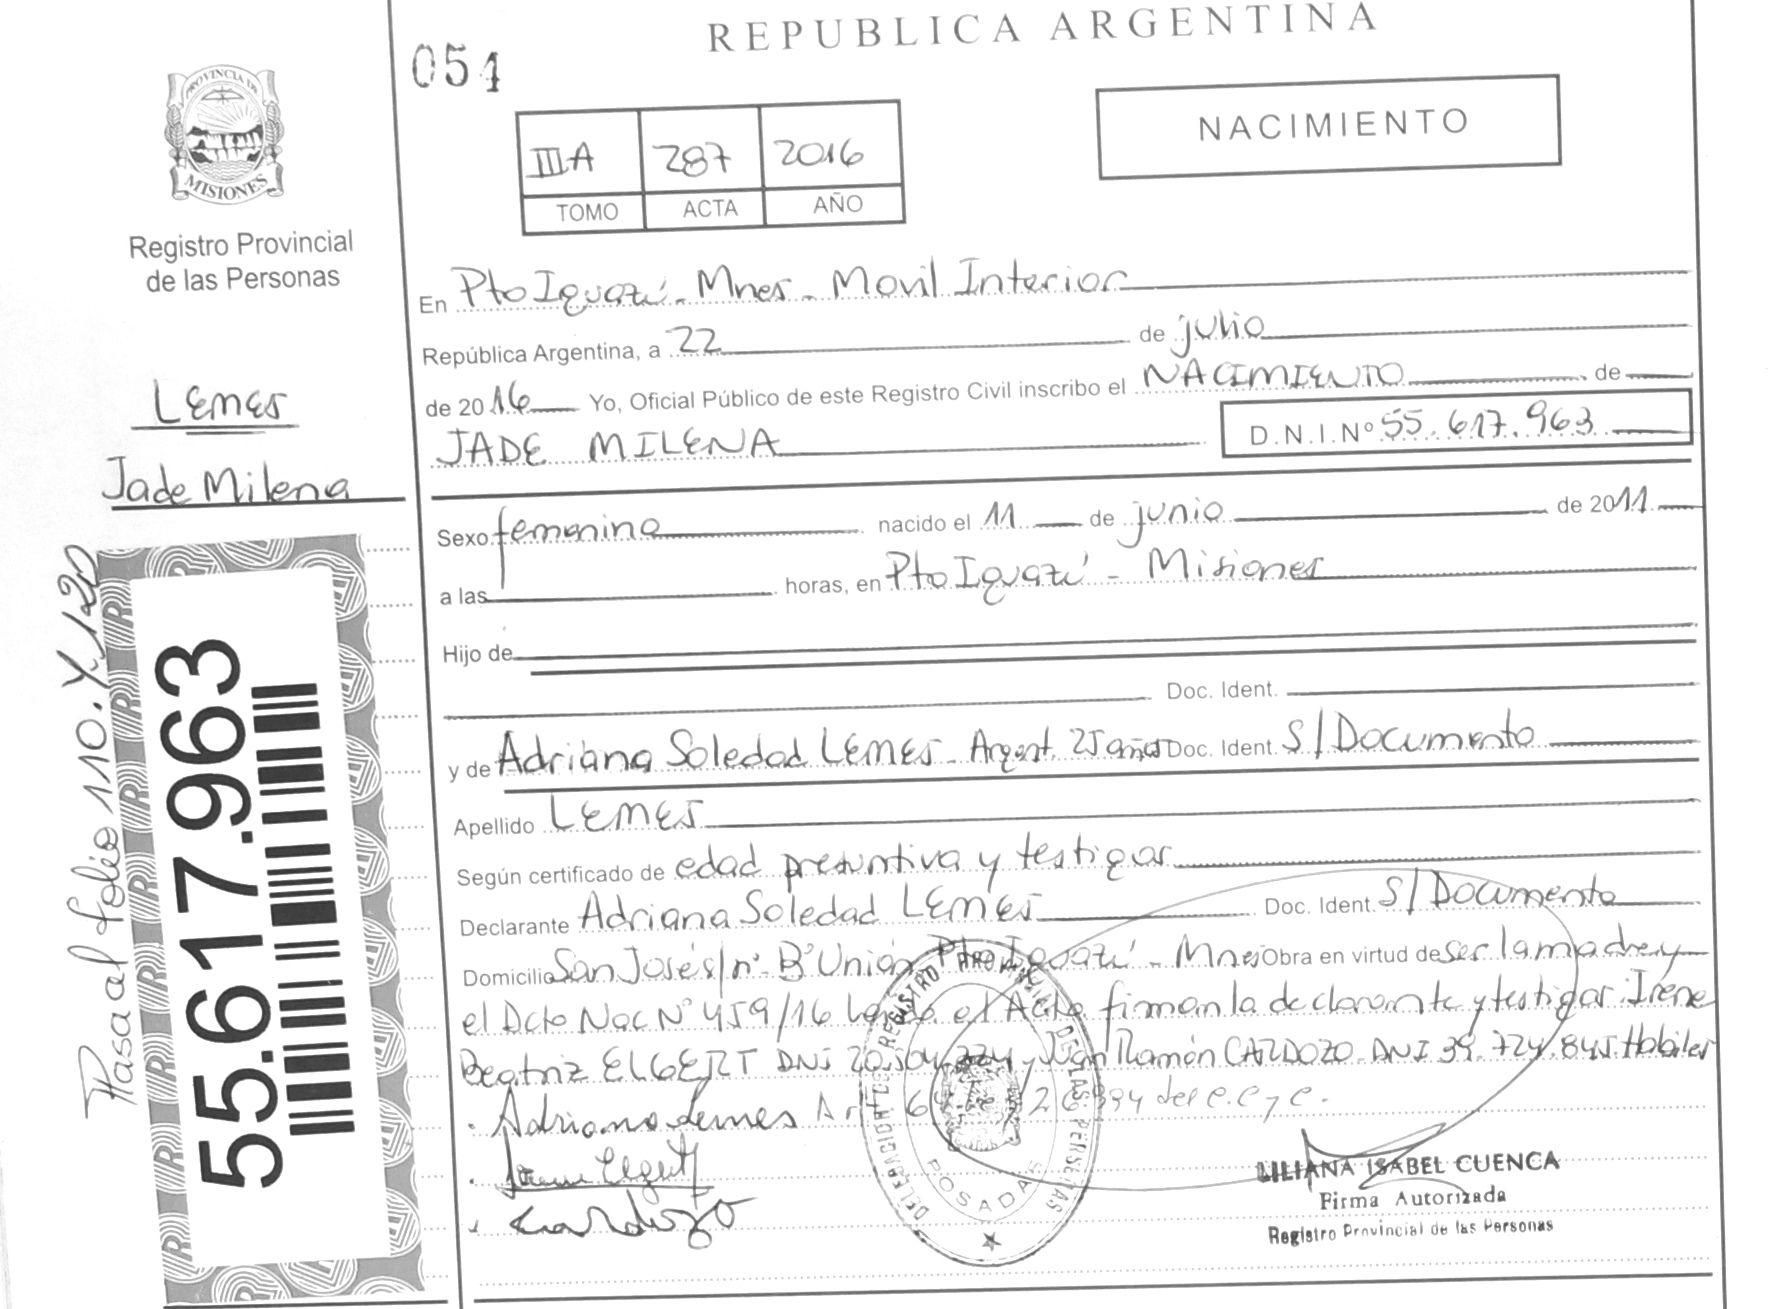 REPUBLICA ARGENTINA
054
NACIMIENTO
PROVINCIA DE
MISIONES
Registro Provincial
de las Personas
III A 287 2016
TOMO ACTA AÑO
Lemes
Jade Milena
En Pto Iguazú - Mnes - Movil Interior
República Argentina, a 22 de julio
de 2016 Yo, Oficial Público de este Registro Civil inscribo el NACIMIENTO de
JADE MILENA D.N.I.Nº 55.617.963
Sexo femenino nacido el 11 de junio de 2011
a las horas, en Pto Iguazú - Misiones
Hijo de
Doc. Ident.
y de Adriana Soledad Lemes - Argent. 25 años Doc. Ident. S/Documento
Apellido Lemes
Según certificado de edad presuntiva y testigos
Declarante Adriana Soledad Lemes Doc. Ident. S/Documento
Domicilio San José s/nº - Bº Unión Pto Iguazú - Mnes Obra en virtud de ser la madre y
el Dcto Nac Nº 459/16 el Acta firman la declarante y testigos: Irene
Beatriz ELGERT DNI y Juan Ramón CARDOZO DNI 39.724.845 Habiles
Adriana Lemes del C.C y C.
Cardozo
Pasa al folio 110. Y 120
55.617.963
DELEGACION DE REGISTRO PROVINCIAL DE LAS PERSONAS
POSADAS
LILIANA ISABEL CUENCA
Firma Autorizada
Registro Provincial de las Personas